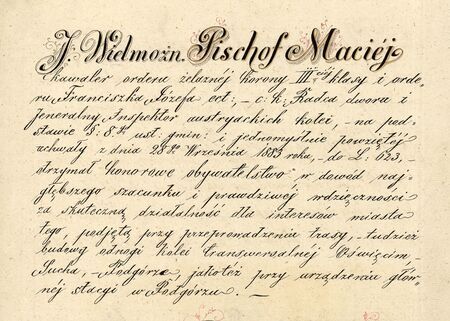 J. Wielmożn. Pischof Maciéj
kawaler orderu żelaznéj Korony III ciéj klasy i orde-
ru Franciszka Józefa ect: – c. k. Radca dworu i
jeneralny Inspektor austryackich kolei, – na pod-
stawie §: 8go ust: gmin: i jednomyślnie powziętéj
uchwały z dnia 28go Września 1883 roku, – do L: 623, –
otrzymał honorowe obywatelstwo w dowód naj-
głębszego szacunku i prawdziwéj wdzięczności
za skuteczną działalność dla interesów miasta
tego, podjętą przy przeprowadzeniu trasy, – tudzież
budowy odnogi kolei transwersalnéj Oświęcim –
Sucha, – Podgórze, jakoteż przy urządzeniu głów-
néj stacyi w Podgórzu. –